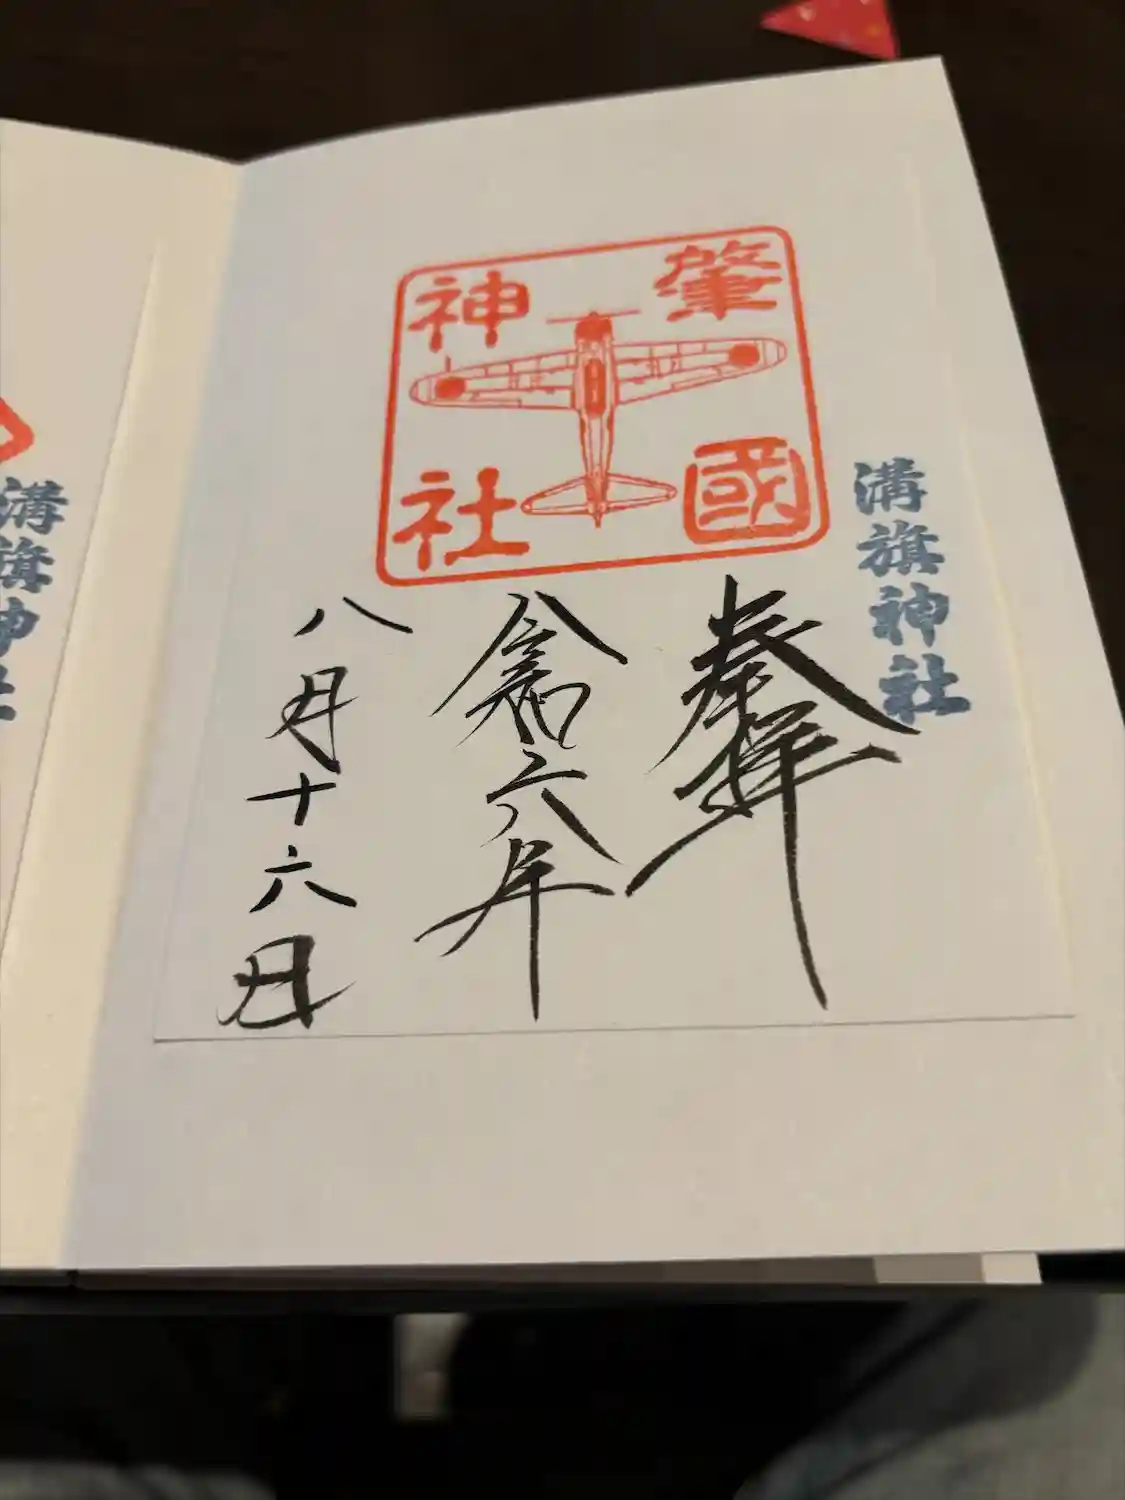 肇國
神社
溝旗神社
奉拝
令和六年
八月十六日
溝旗神社